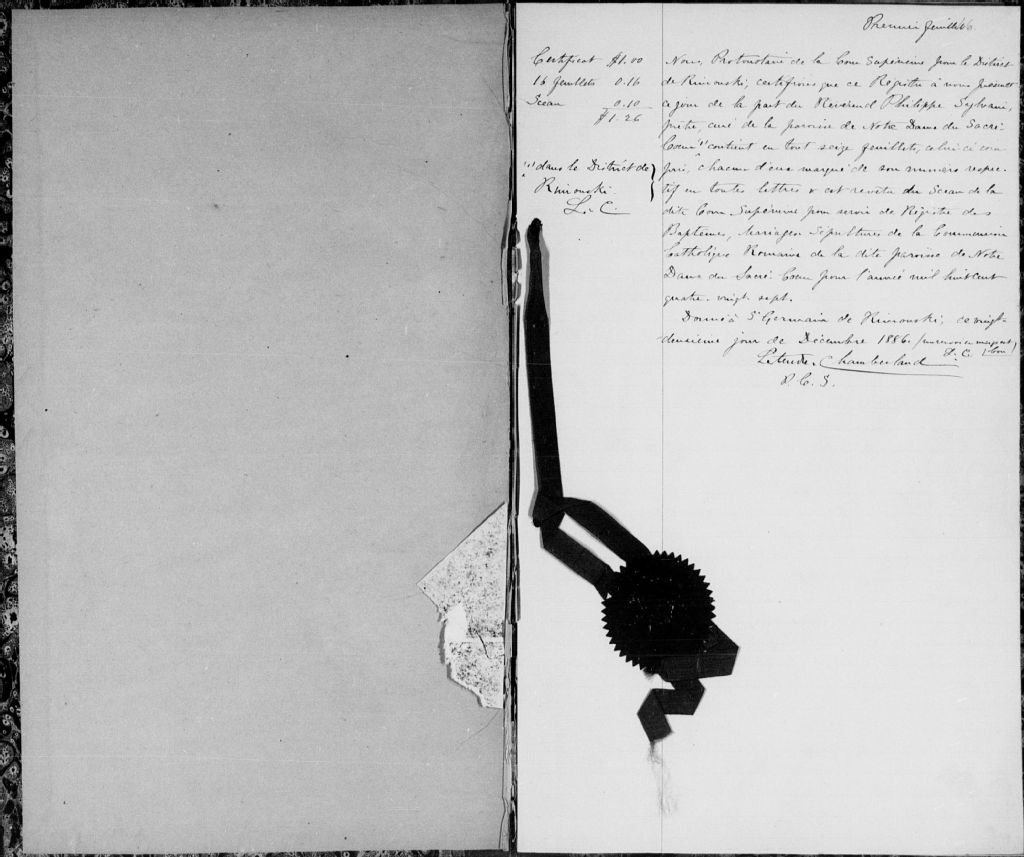 Premier feuillet
Certificat $1.00
16 feuillets 0.16
Sceau 0.10
$1.26
"1" dans le District de
Rimouski.
L. C.
Nous, Protonotaire de la Cour Supérieure pour le District
de Rimouski, certifions que ce Registre à nous présenté
ce jour de la part du Révérend Philippe Sylvain,
prêtre, curé de la paroisse de Notre Dame du Sacré-
Coeur "1" contient en tout seize feuillets, celui ci com
pris, chacun d'eux marqué de son numéro respec-
tif en toutes lettres & est revêtu du Sceau de la
dite Cour Supérieure pour servir de Régistre des
Baptêmes, Mariages Sépultures de la Communion
Catholique Romaine de la dite paroisse de Notre
Dame du Sacré Coeur pour l'année mil huit cent
quatre-vingt-sept.
Donné à St Germain de Rimouski, ce vingt-
deuxième jour de Décembre 1886. (un renvoi en marge est
bon)
L. C.
Chamberland
P. C. S.